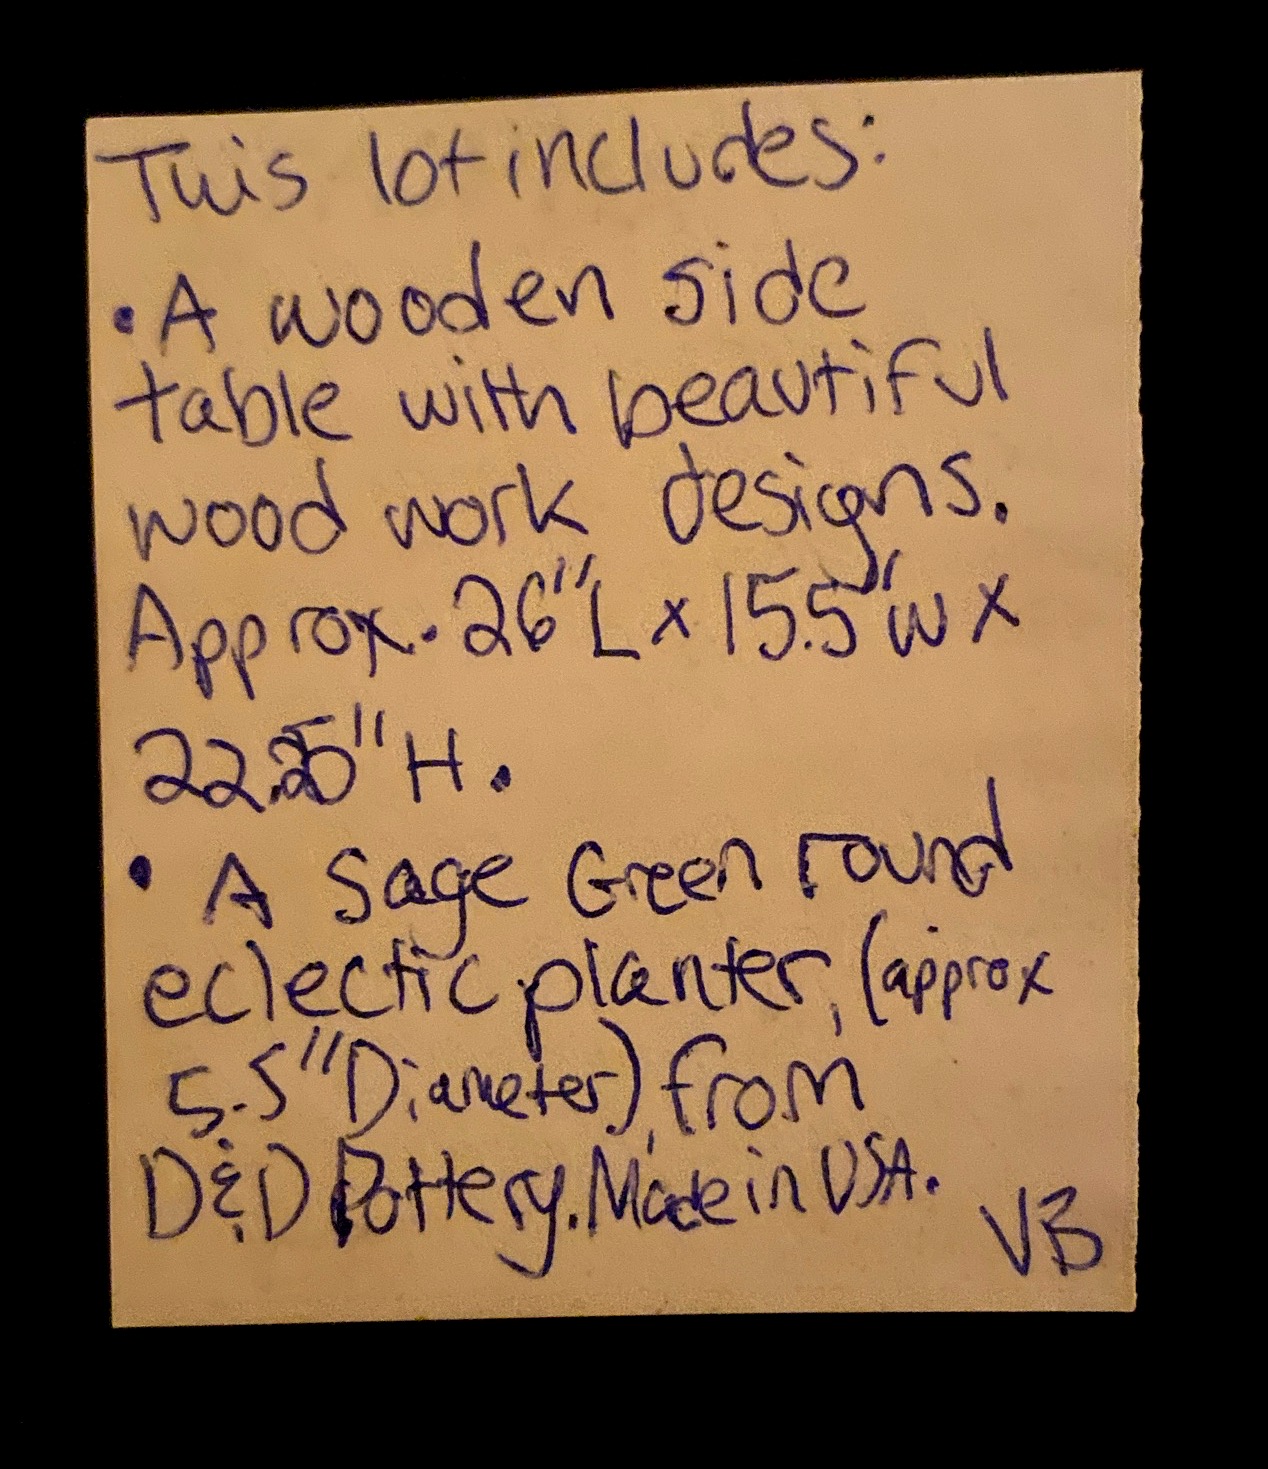 This lot includes:
• A wooden side
table with beautiful
wood work designs.
Approx. 26"L x 15.5"W x
22.25"H.
• A Sage Green round
eclectic planter, (approx
5.5" Diameter), from
D&D Pottery. Made in USA.
VB